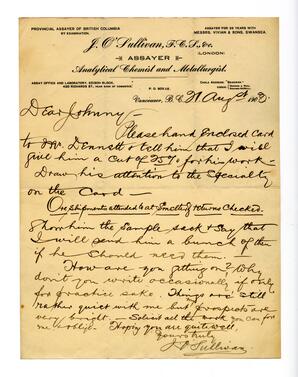 PROVINCIAL ASSAYER OF BRITISH COLUMBIA
BY EXAMINATION.
ASSAYER FOR 26 YEARS WITH
MESSRS. VIVIAN & SONS, SWANSEA
J. O'Sullivan, F.C.S., &c.
(LONDON)
ASSAYER
Analytical Chemist and Metallurgist.
ASSAY OFFICE AND LABORATORY,
P. O. BOX
Vancouver, B.C. 21 Aug 190
Dear Johnny -
Please hand Enclosed Card
to Mr Dennett & tell him that I will
give him a Cut of 25% for his work -
Draw his attention to the Specialty
on the Card -
Ore Shipments attended to at Smelter & returns Checked.
Show him the Sample sack & Say that
I will send him a bunch of them
if he Should need them.
How are you getting on? Why
don't you write occasionally if only
for practice sake. Things are still
rather quiet with me but prospects are
very bright - Solicit all the work you can for
me & oblige. Hoping you are quite well.
Yours truly
J. O'Sullivan